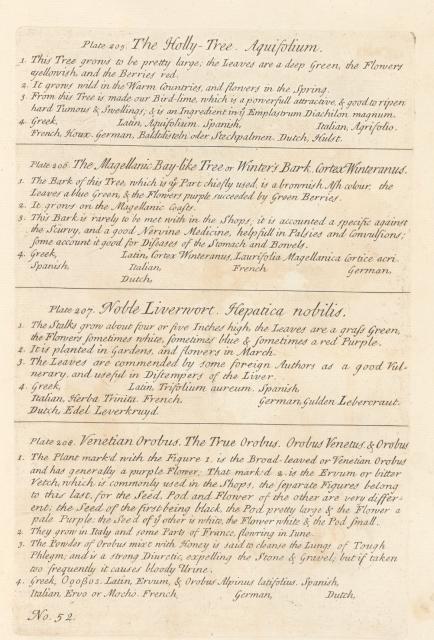 Plate 205. The Holly-Tree. Aquifolium.
1. This Tree grows to be pretty large; the Leaves are a deep Green, the Flowers
yellowish, and the Berries red.
2. It grows wild in the Warm Countries, and flowers in the Spring.
3. From this Tree is made our Bird-lime, which is a powerfull attractive, & good to ripen
hard Tumours & Swellings; & is an Ingredient in yͤ Emplastrum Diachilon magnum.
4. Greek, Latin, Aquifolium. Spanish, Italian, Agrifolio.
French, Houx. German, Baldtdisteln oder Stechpalmen. Dutch, Hulst.
Plate 206. The Magellanic Bay-like Tree or Winter's Bark. Cortex Winteranus.
1. The Bark of this Tree, which is yͤ Part chiefly used, is a brownish Ash colour, the
Leaves a blue Green, & the Flowers purple succeeded by Green Berries.
2. It grows on the Magellanic Coasts.
3. This Bark is rarely to be met with in the Shops; it is accounted a specific against
the Scurvy, and a good Nervine Medicine, helpfull in Palsies and Convulsions;
some account it good for Diseases of the Stomach and Bowels.
4. Greek, Latin, Cortex Winteranus, Laurifolia Magellanica Cortice acri.
Spanish, Italian, French German,
Dutch,
Plate 207. Noble Liverwort. Hepatica nobilis.
1. The Stalks grow about four or five Inches high, the Leaves are a grass Green,
the Flowers sometimes white, sometimes blue & sometimes a red Purple.
2. It is planted in Gardens, and flowers in March.
3. The Leaves are commended by some foreign Authors as a good Vul-
nerary, and useful in Distempers of the Liver.
4. Greek, Latin, Trifolium aureum. Spanish
Italian, Herba Trinita. French. German, Gulden Lebercraut.
Dutch, Edel Leverkruyd.
Plate 208. Venetian Orobus. The True Orobus. Orobus Venetus, & Orobus
1. The Plant mark'd with the Figure 1. is the Broad-leaved or Venetian Orobus
and has generally a purple Flower; That mark'd 2. is the Ervum or bitter
Vetch, which is commonly used in the Shops, the separate Figures belong
to this last, for the Seed, Pod and Flower of the other are very differ-
ent; the Seed of the first being black, the Pod pretty large & the Flower a
pale Purple: the Seed of yͤ other is white, the Flower white & the Pod small.
2. They grow in Italy and some Parts of France, flowring in June.
3. The Powder of Orobus mixt with Honey is said to cleanse the Lungs of Tough
Phlegm; and is a strong Diuretic, expelling the Stone & Gravel; but if taken
too frequently it causes bloody Urine.
4. Greek, Οροβος. Latin, Ervum, & Orobus Alpinus latifolius. Spanish,
Italian, Ervo or Mocho. French, German, Dutch,
No. 52.